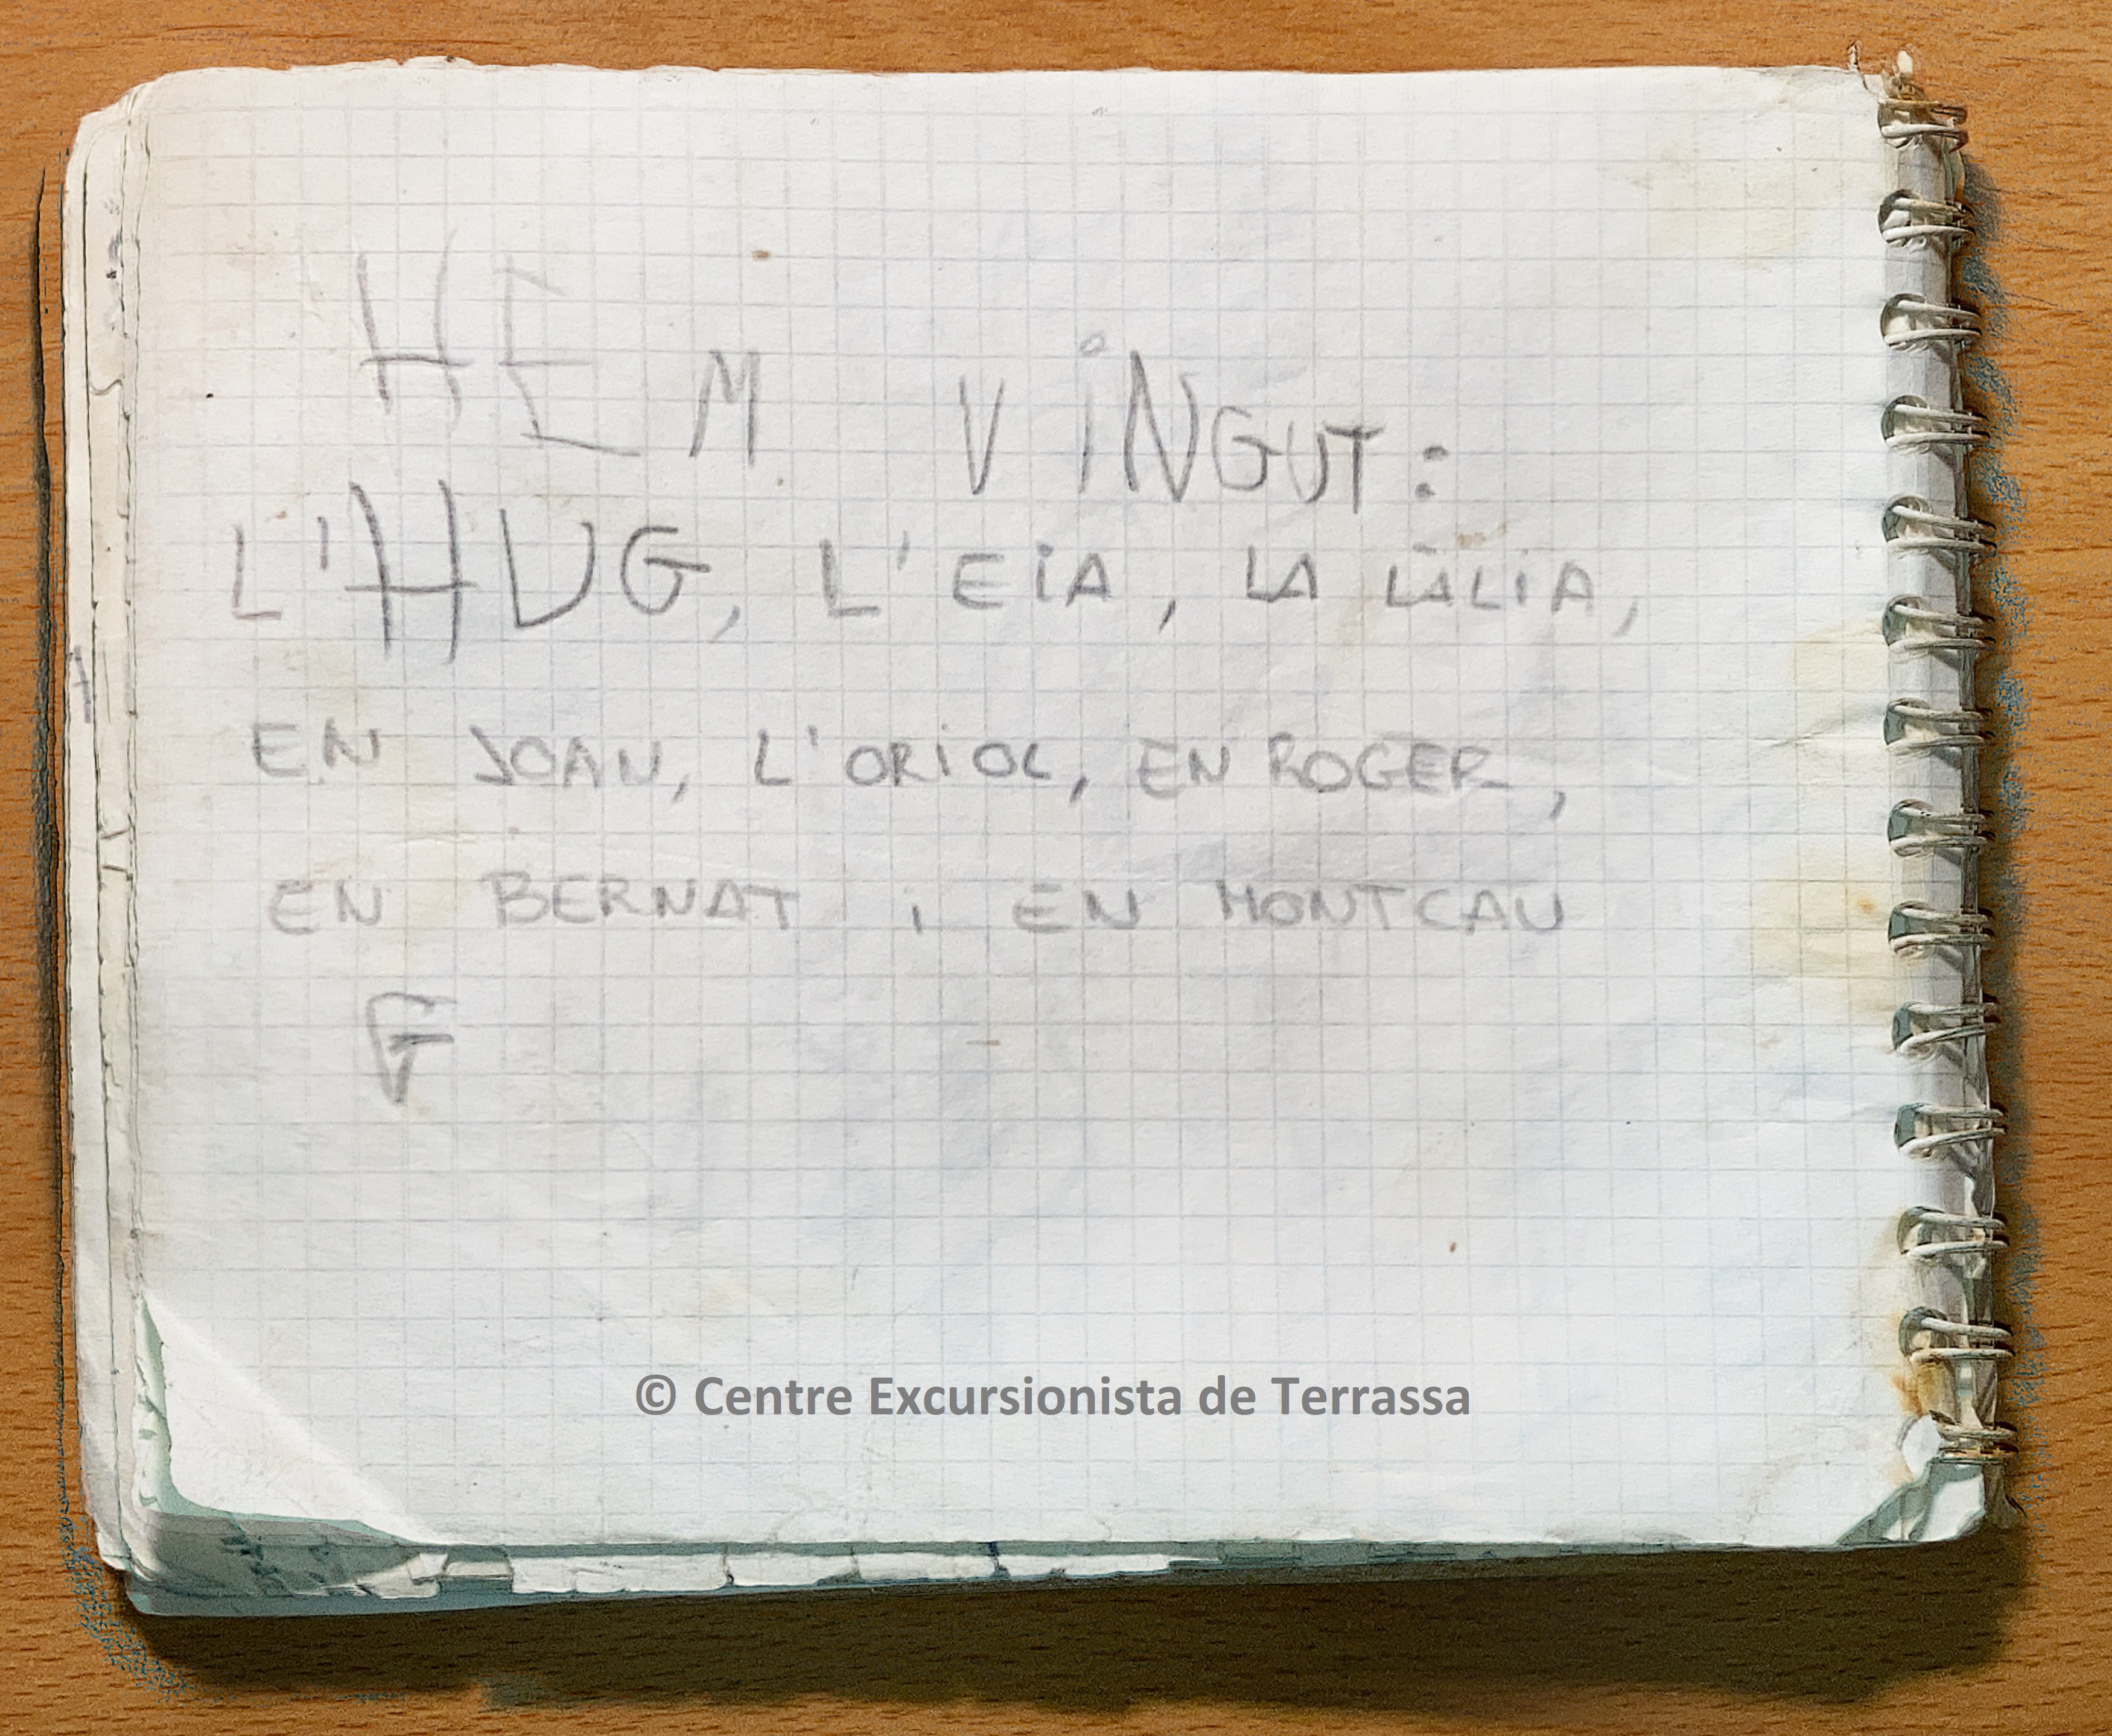 HEM VINGUT:
L'HUG, L'EIA, LA LÀLIA,
EN JOAN, L'ORIOL, EN ROGER,
EN BERNAT i EN MONTCAU
G
© Centre Excursionista de Terrassa